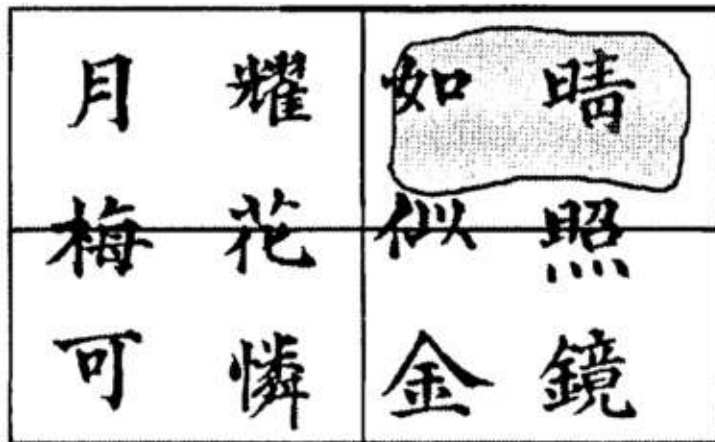 月耀如晴
梅花似照
可憐金鏡